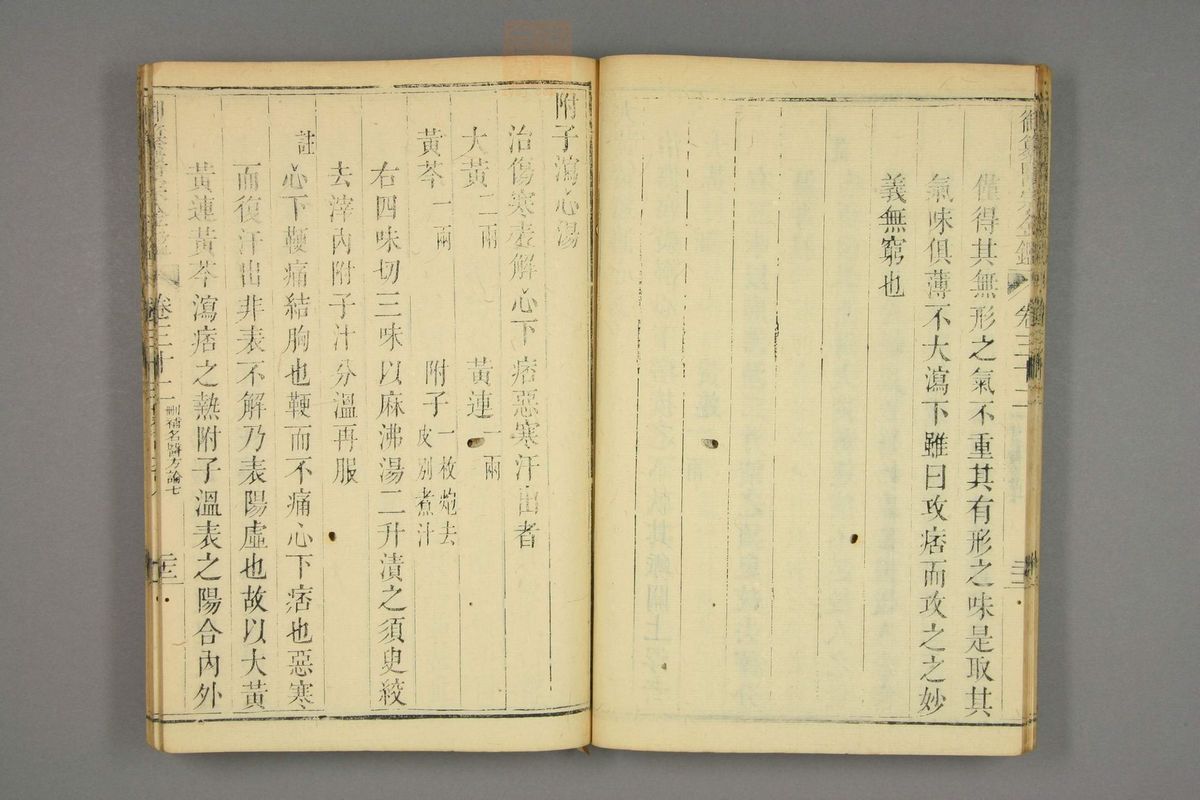 御纂醫宗金鑑 卷三十二
僅得其無形之氣不重其有形之味是取其
氣味俱薄不大瀉下雖曰攻痞而攻之之妙
義無窮也
附子瀉心湯
治傷寒表解心下痞惡寒汗出者
大黃二兩 黃連一兩
黃芩一兩 附子一枚炮去皮別煮汁
右四味切三味以麻沸湯二升漬之須臾絞
去滓內附子汁分溫再服
註 心下鞕痛結胸也鞕而不痛心下痞也惡寒
而復汗出非表不解乃表陽虛也故以大黃
黃連黃芩瀉痞之熱附子溫表之陽合內外
卷三十二 刪補名醫方論七